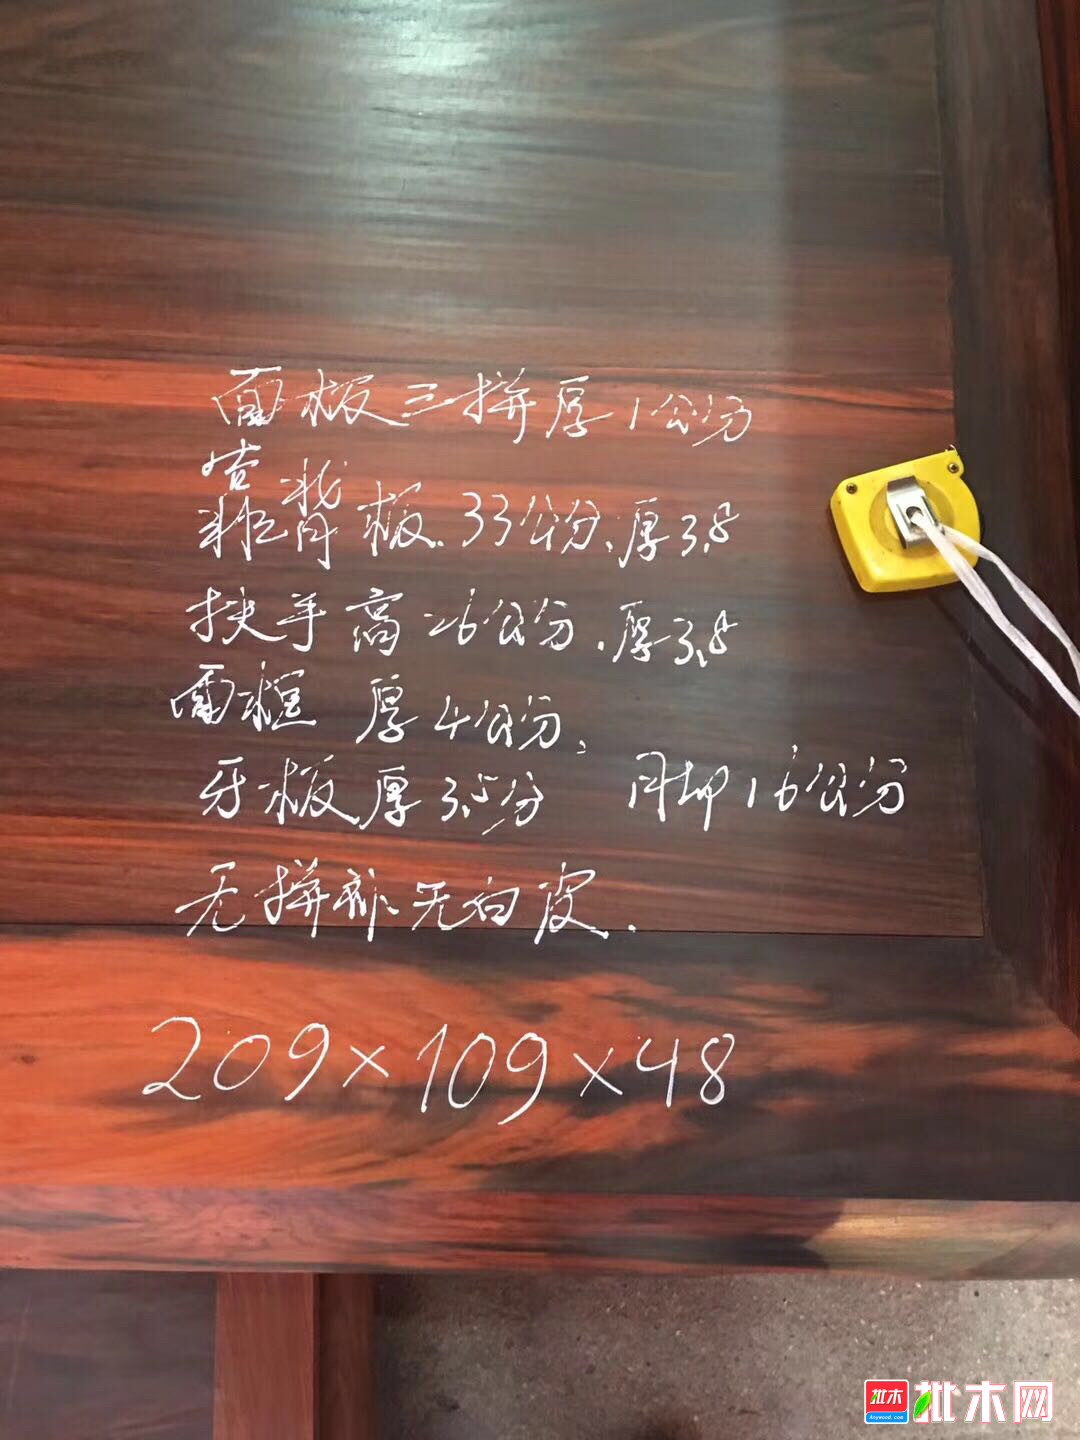 面板三拼厚1公分
靠背板.33公分.厚3.8
扶手高26公分.厚3.8
面框 厚4公分,
牙板厚3.5分 月却16公分
无拼补无白皮.
209×109×48
批木
Anywood.com
批木网